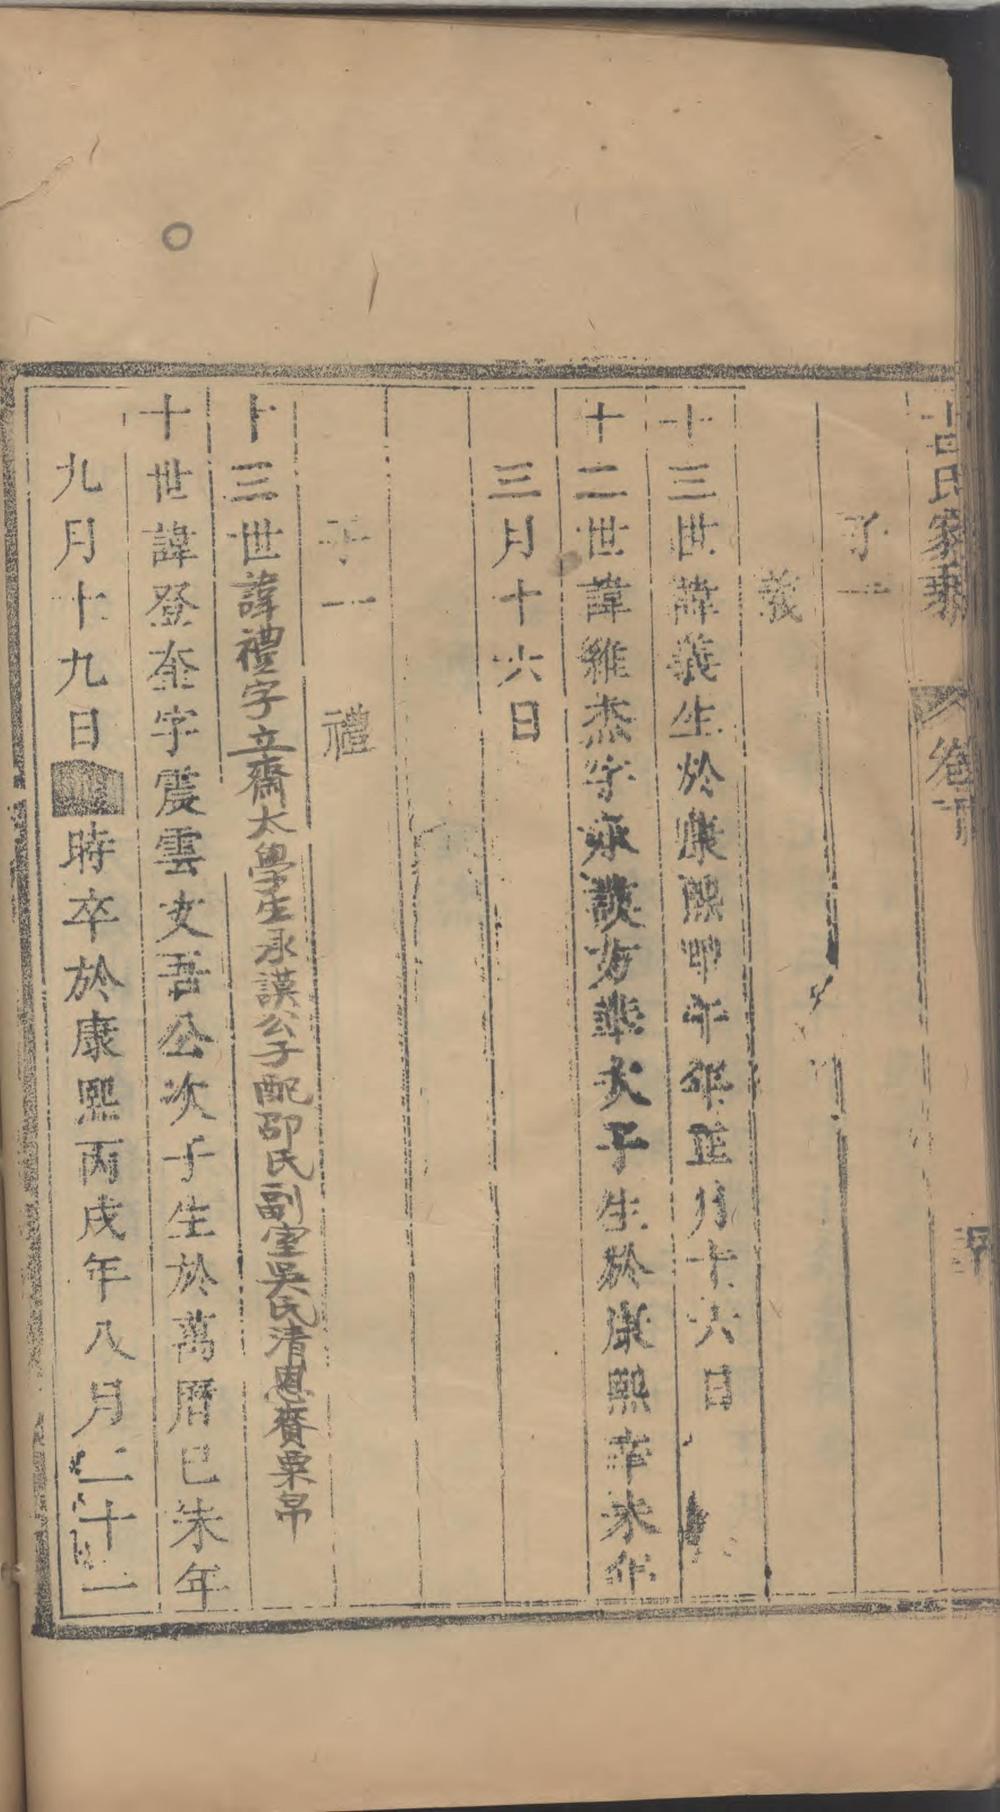 氏家乘　卷下
子一
義
十三世諱義生於康熙甲午年正月十六日
十二世諱維杰字承謨芳華大子生於康熙辛未年
三月十六日
子一　禮
十三世諱禮字立齋太學生承謨公子配邵氏副室吳氏清恩賚粟帛
十世諱登奎字震雲文吾公次子生於萬曆己未年
九月十九日時卒於康熙丙戌年八月二十一